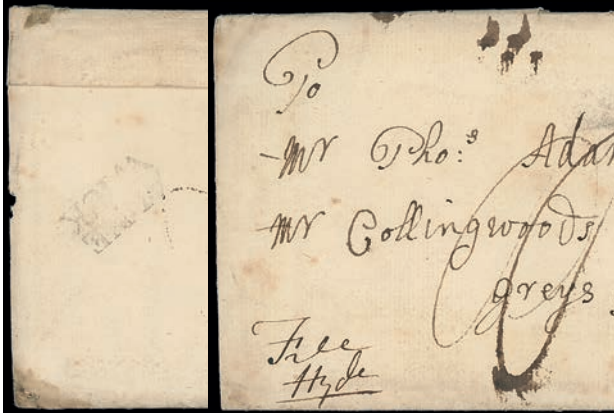 To
Mr Tho:s Adam
Mr Collingwoods
greys
Free
Hyde